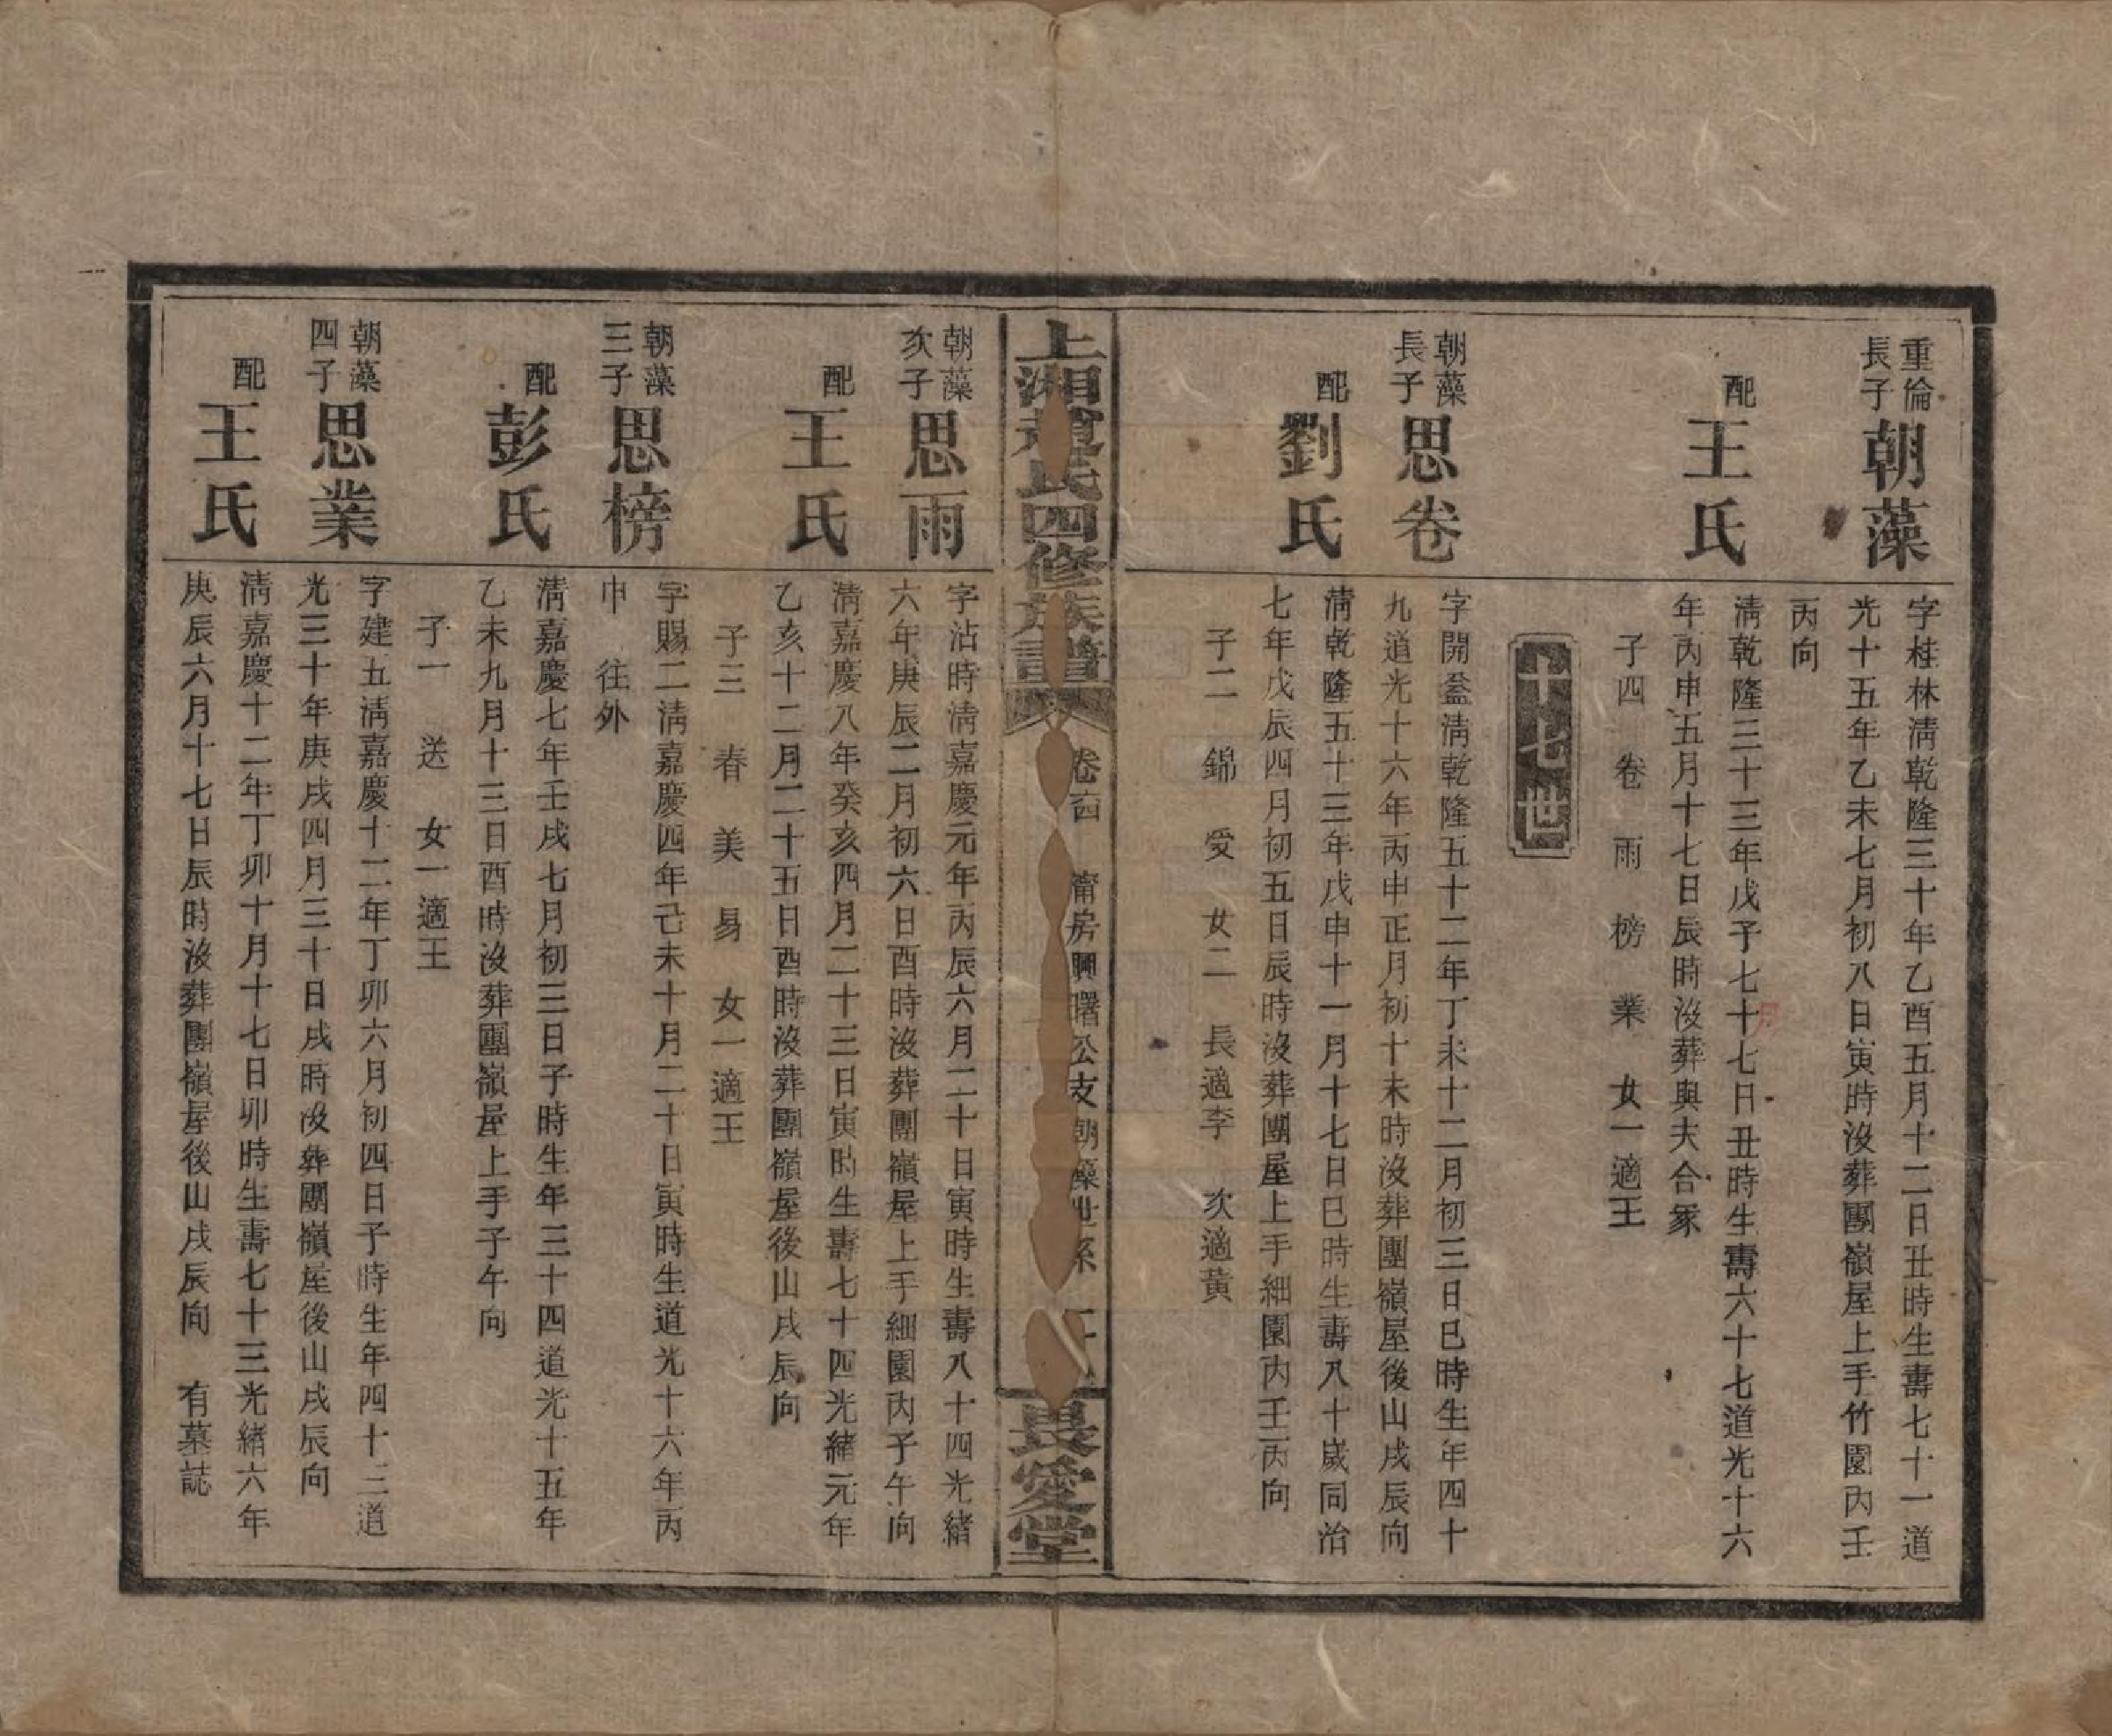 重倫
長子
朝藻
字桂林淸乾隆三十年乙酉五月十二日丑時生壽七十一道
光十五年乙未七月初八日寅時沒葬團嶺屋上手竹園內壬
丙向
配
王氏
淸乾隆三十三年戊子七十七日丑時生壽六十七道光十六
月
年丙申五月十七日辰時沒葬與夫合冢
子四 卷 雨 榜 業 女一適王
十七世
朝藻
長子
思卷
字開益淸乾隆五十二年丁未十二月初三日巳時生年四十
九道光十六年丙申正月初十未時沒葬團嶺屋後山戌辰向
配
劉氏
淸乾隆五十三年戊申十一月十七日巳時生壽八十歲同治
七年戊辰四月初五日辰時沒葬團屋上手細園內壬丙向
子二 錦 受 女二 長適李 次適黃
上湘趙氏四修族譜
房興曙公支朝藻世系
長愛堂
朝藻
次子
思雨
字沾時淸嘉慶元年丙辰六月二十日寅時生壽八十四光緒
六年庚辰二月初六日酉時沒葬團嶺屋上手細園內子午向
配
王氏
淸嘉慶八年癸亥四月二十三日寅時生壽七十四光緒元年
乙亥十二月二十五日酉時沒葬團嶺屋後山戌辰向
子三 春 美 易 女一適王
朝藻
三子
思榜
字賜二淸嘉慶四年己未十月二十日寅時生道光十六年丙
申 往外
配
彭氏
淸嘉慶七年壬戌七月初三日子時生年三十四道光十五年
乙未九月十三日酉時沒葬團嶺屋上手子午向
子一 送 女一適王
朝藻
四子
思業
字建五淸嘉慶十二年丁卯六月初四日子時生年四十三道
光三十年庚戌四月三十日戌時沒葬團嶺屋後山戌辰向
配
王氏
淸嘉慶十二年丁卯十月十七日卯時生壽七十三光緒六年
庚辰六月十七日辰時沒葬團嶺屋後山戌辰向 有墓誌